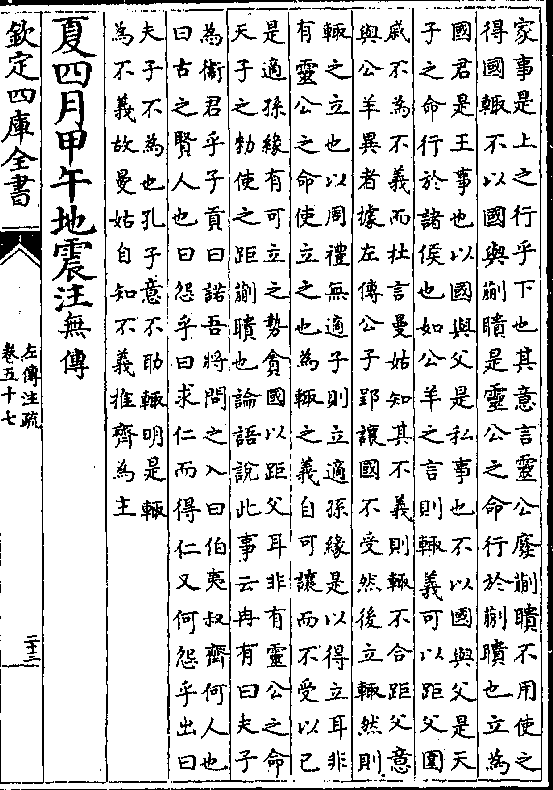 家事是上之行乎下也其意言靈公廢蒯聵不用使之
得國輒不以國與蒯聵是靈公之命行於蒯聵也立為
國君是王事也以國與父是私事也不以國與父是天
子之命行於諸侯也如公羊之言則輒義可以距父圍
戚不為不義而杜言曼姑知其不義則輒不合距父意
與公羊異者據左傳公子郢讓國不受然後立輒然則
輒之立也以周禮無適子則立適孫緣是以得立耳非
有靈公之命使立之也為輒之義自可讓而不受以己
是適孫緣有可立之勢貪國以距父耳非有靈公之命
天子之勅使之距蒯聵也論語說此事云冉有曰夫子
為衛君乎子貢曰諾吾將問之入曰伯夷叔齊何人也
曰古之賢人也曰怨乎曰求仁而得仁又何怨乎出曰
夫子不為也孔子意不助輒明是輒
為不義故曼姑自知不義推齊為主
夏四月甲午地震注無傳
欽定四庫全書
左傳注疏
卷五十七
二十三